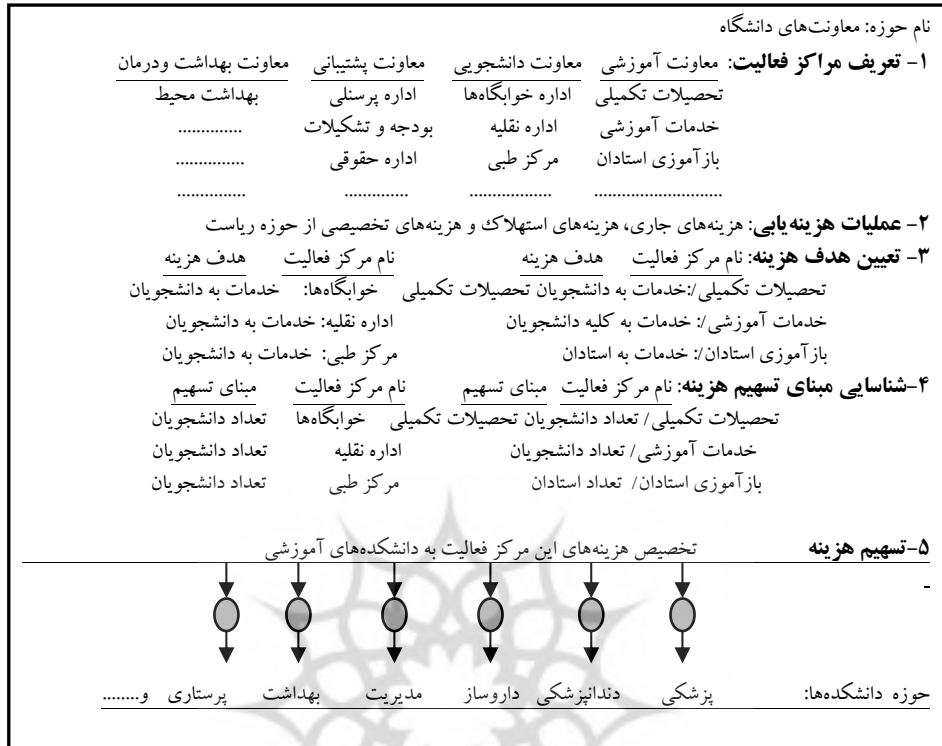 نام حوزه: معاونت‌های دانشگاه
۱- تعریف مراکز فعالیت: معاونت آموزشی معاونت دانشجویی معاونت پشتیبانی معاونت بهداشت ودرمان
تحصیلات تکمیلی اداره خوابگاه‌ها اداره پرسنلی بهداشت محیط
خدمات آموزشی اداره نقلیه بودجه و تشکیلات ..............
بازآموزی استادان مرکز طبی اداره حقوقی ...............
.......................... ................. ............. ..............
۲- عملیات هزینه‌یابی: هزینه‌های جاری، هزینه‌های استهلاك و هزینه‌های تخصیصی از حوزه ریاست
۳- تعیین هدف هزینه: نام مرکز فعالیت هدف هزینه نام مرکز فعالیت هدف هزینه
تحصیلات تکمیلی/:خدمات به دانشجویان تحصیلات تکمیلی خوابگاه‌ها: خدمات به دانشجویان
خدمات آموزشی/: خدمات به کلیه دانشجویان اداره نقلیه: خدمات به دانشجویان
بازآموزی استادان/: خدمات به استادان مرکز طبی: خدمات به دانشجویان
۴-شناسایی مبنای تسهیم هزینه: نام مرکز فعالیت مبنای تسهیم نام مرکز فعالیت مبنای تسهیم
تحصیلات تکمیلی/ تعداد دانشجویان تحصیلات تکمیلی خوابگاه‌ها تعداد دانشجویان
خدمات آموزشی/ تعداد دانشجویان اداره نقلیه تعداد دانشجویان
بازآموزی استادان/ تعداد استادان مرکز طبی تعداد دانشجویان
۵-تسهیم هزینه تخصیص هزینه‌های این مرکز فعالیت به دانشکده‌های آموزشی
-
حوزه دانشکده‌ها: پزشکی دندانپزشکی داروساز مدیریت بهداشت پرستاری و........